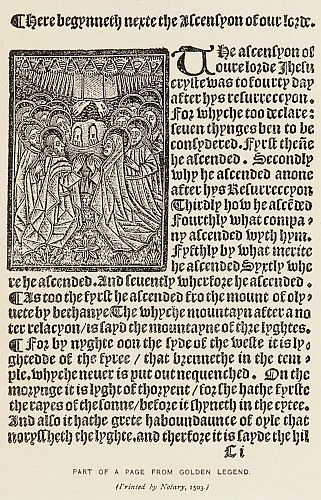 ¶Here begynneth nexte the Ascensyon of our lorde.
THe ascensyon of
oure lorde Jhesu
cryste was to fourty day
after hys resurreccyon.
For whyche too declare:
seuen thynges ben to be
consydered. Fyrst thene
he ascended. Secondly
why he ascended anone
after hys Resurreccyon
Thirdly how he ascēded
Fourthly what compa /
ny ascended wyth hym.
Fyfthly by what merite
he ascended Syxtly whe
re he ascended. And seuently wherfore he ascended.
¶As too the fyrst he ascended fro the mount of oly/
uete by bethanye The whyche mountayn after a no
ter relacyon / is sayd the mountayne of thre lyghtes.
¶ For by nyghte oon the syde of the weste it is ly/
ghtedde of the fyree / that brennethe in the tem /
ple. whyche neuer is put out ne quenched. On the
mornynge it is lyght of thoryent / for she hathe fyrste
the rayes of the sonne / before it shyneth in the cytee.
And also it hathe grete haboundaunce of oyle that
norysheth the lyghte. and therfore it is sayde the hil
Li
PART OF A PAGE FROM GOLDEN LEGEND.
(Printed by Notary, 1503.)